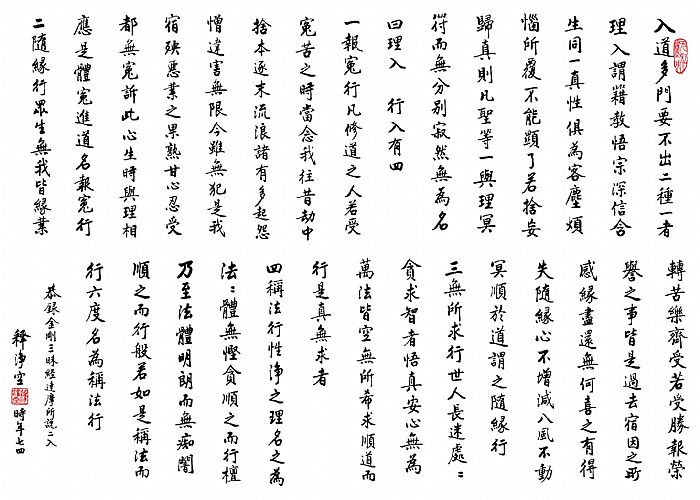 入道多門要不出二種一者
理入謂藉教悟宗深信含
生同一真性俱為客塵煩
惱所覆不能顯了若捨妄
歸真則凡聖等一與理冥
符而無分別寂然無為名
曰理入　行入有四
一報冤行凡修道之人若受
冤苦之時當念我往昔劫中
捨本逐末流浪諸有多起怨
憎違害無限今雖無犯是我
宿殃惡業之果熟甘心忍受
都無冤訴此心生時與理相
應是體冤進道名報冤行
二隨緣行眾生無我皆緣業
轉苦樂齊受若受勝報榮
譽之事皆是過去宿因之所
感緣盡還無何喜之有得
失隨緣心不增減八風不動
冥順於道謂之隨緣行
三無所求行世人長迷處：
貪求智者悟真安心無為
萬法皆空無所希求順道而
行是真無求者
四稱法行性淨之理名之為
法：體無慳貪順之而行檀
乃至法體明朗而無痴闇
順之而行般若如是稱法而
行六度名為稱法行
恭錄金剛三昧經達摩所說二入
釋淨空 時年七四